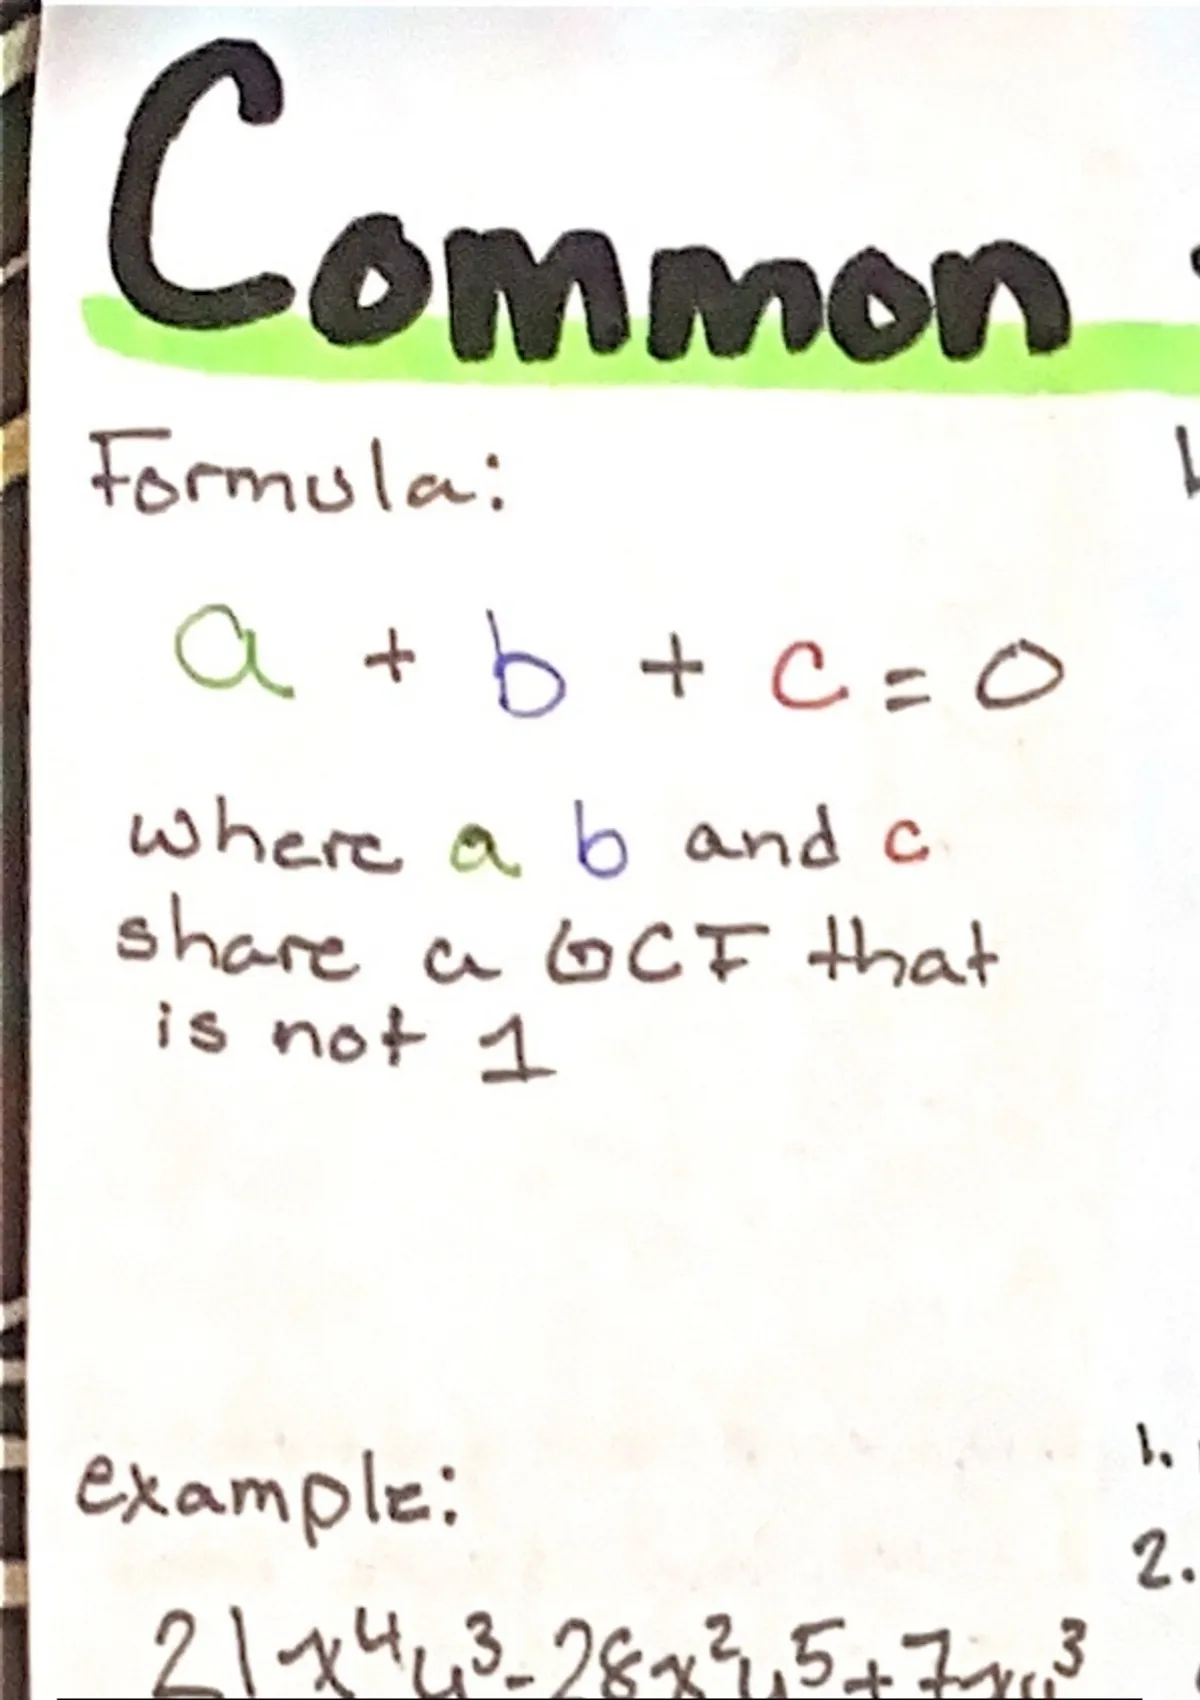 Common
Formula:
a + b + c = 0
where a b and c
share a GCF that
is not 1
1.
example:
2.
21x⁴y³-28x²y⁵+7xy³